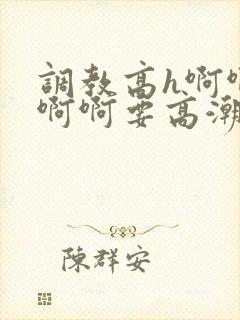 調教高h啊啊
啊啊要高潮
陳群安